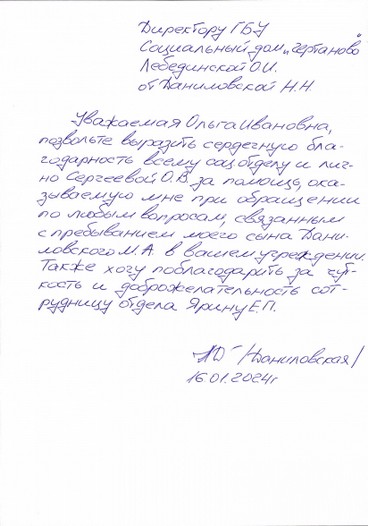 Директору ГБУ
Социальный дом „Чертаново"
Лебединской О.И.
от Даниловской Н.Н.
Уважаемая Ольга Ивановна,
позвольте выразить сердечную бла-
годарность всему соц отделу и лич-
но Сергеевой О.В. за помощь, ока-
зываемую мне при обращении
по любым вопросам, связанным
с пребыванием моего сына Дани-
ловского М.А. в вашем учреждении.
Также хочу поблагодарить за чут-
кость и доброжелательность сот-
рудницу отдела Ярину Е.П.
/Даниловская/
16.01.2024г